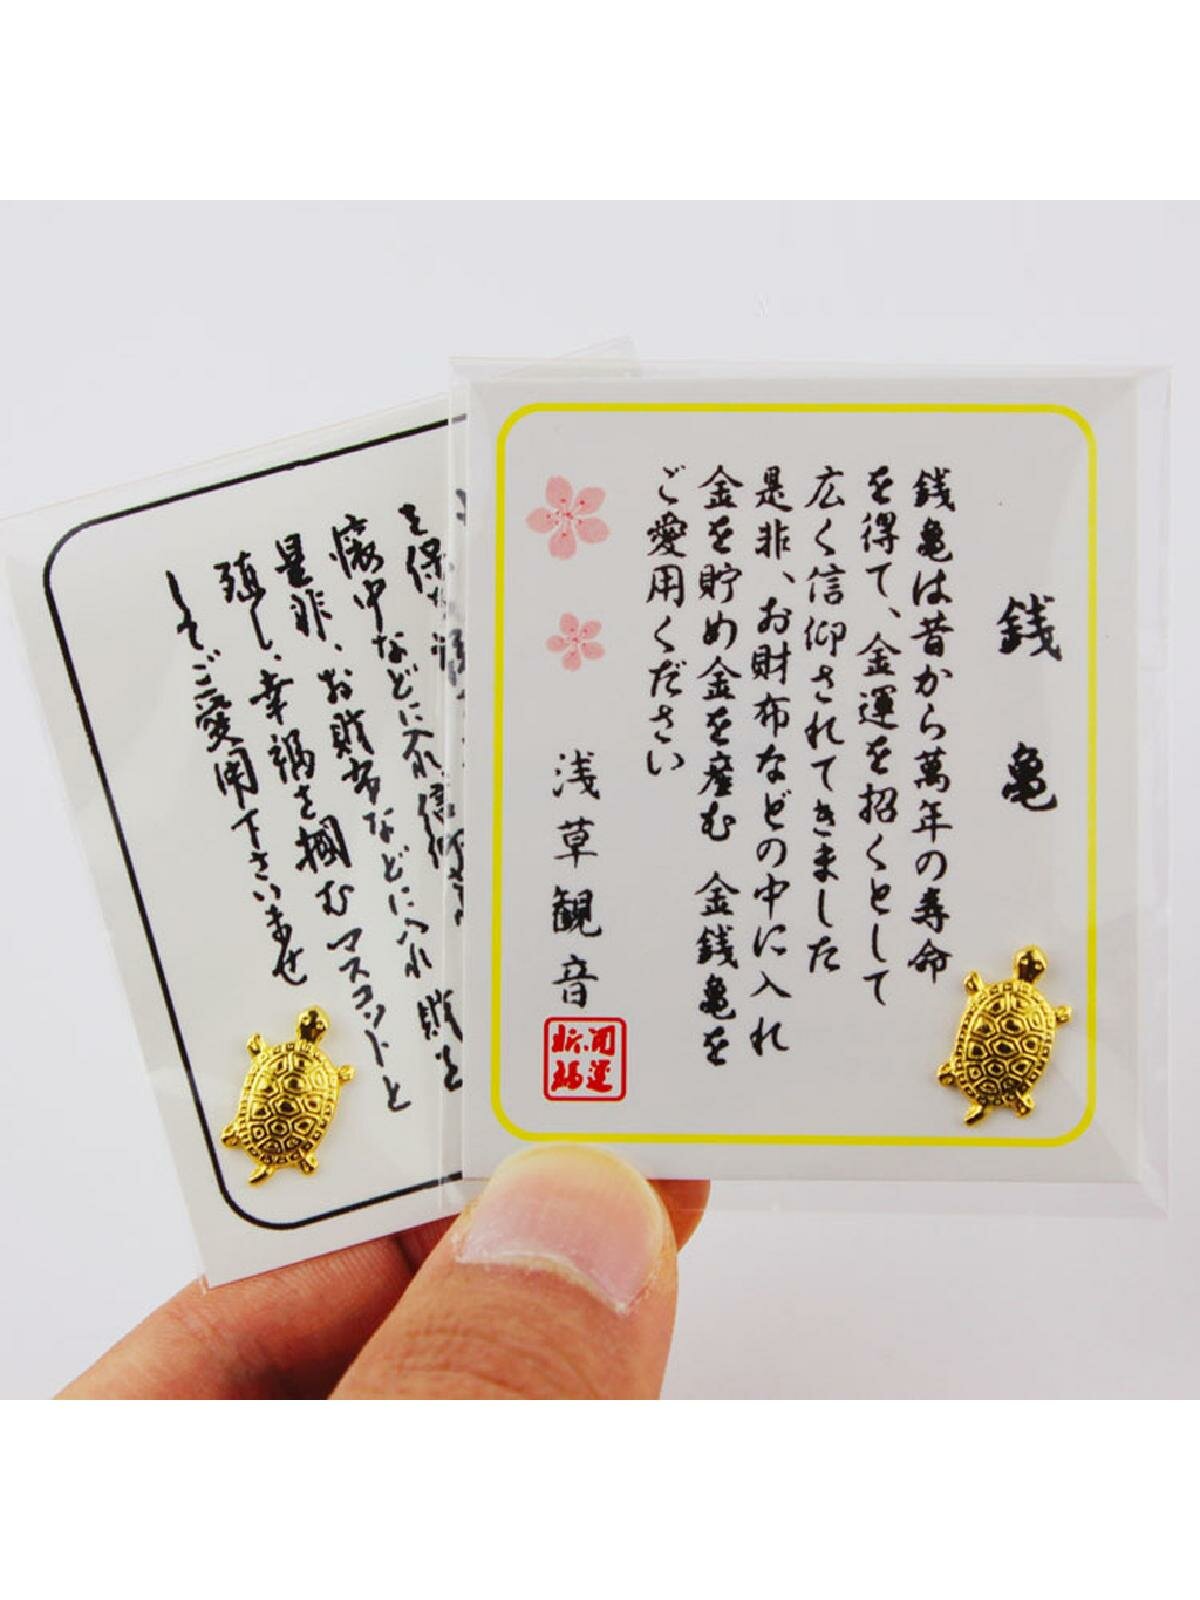 銭亀
銭亀は昔から萬年の寿命
を得て、金運を招くとして
広く信仰されてきました
是非、お財布などの中に入れ
金を貯め金を産む 金銭亀を
ご愛用ください
浅草観音
開運
懐中などに入れ信仰
是非、お財布などに入れ財を
殖し、幸福を掴むマスコットと
してご愛用下さいませ